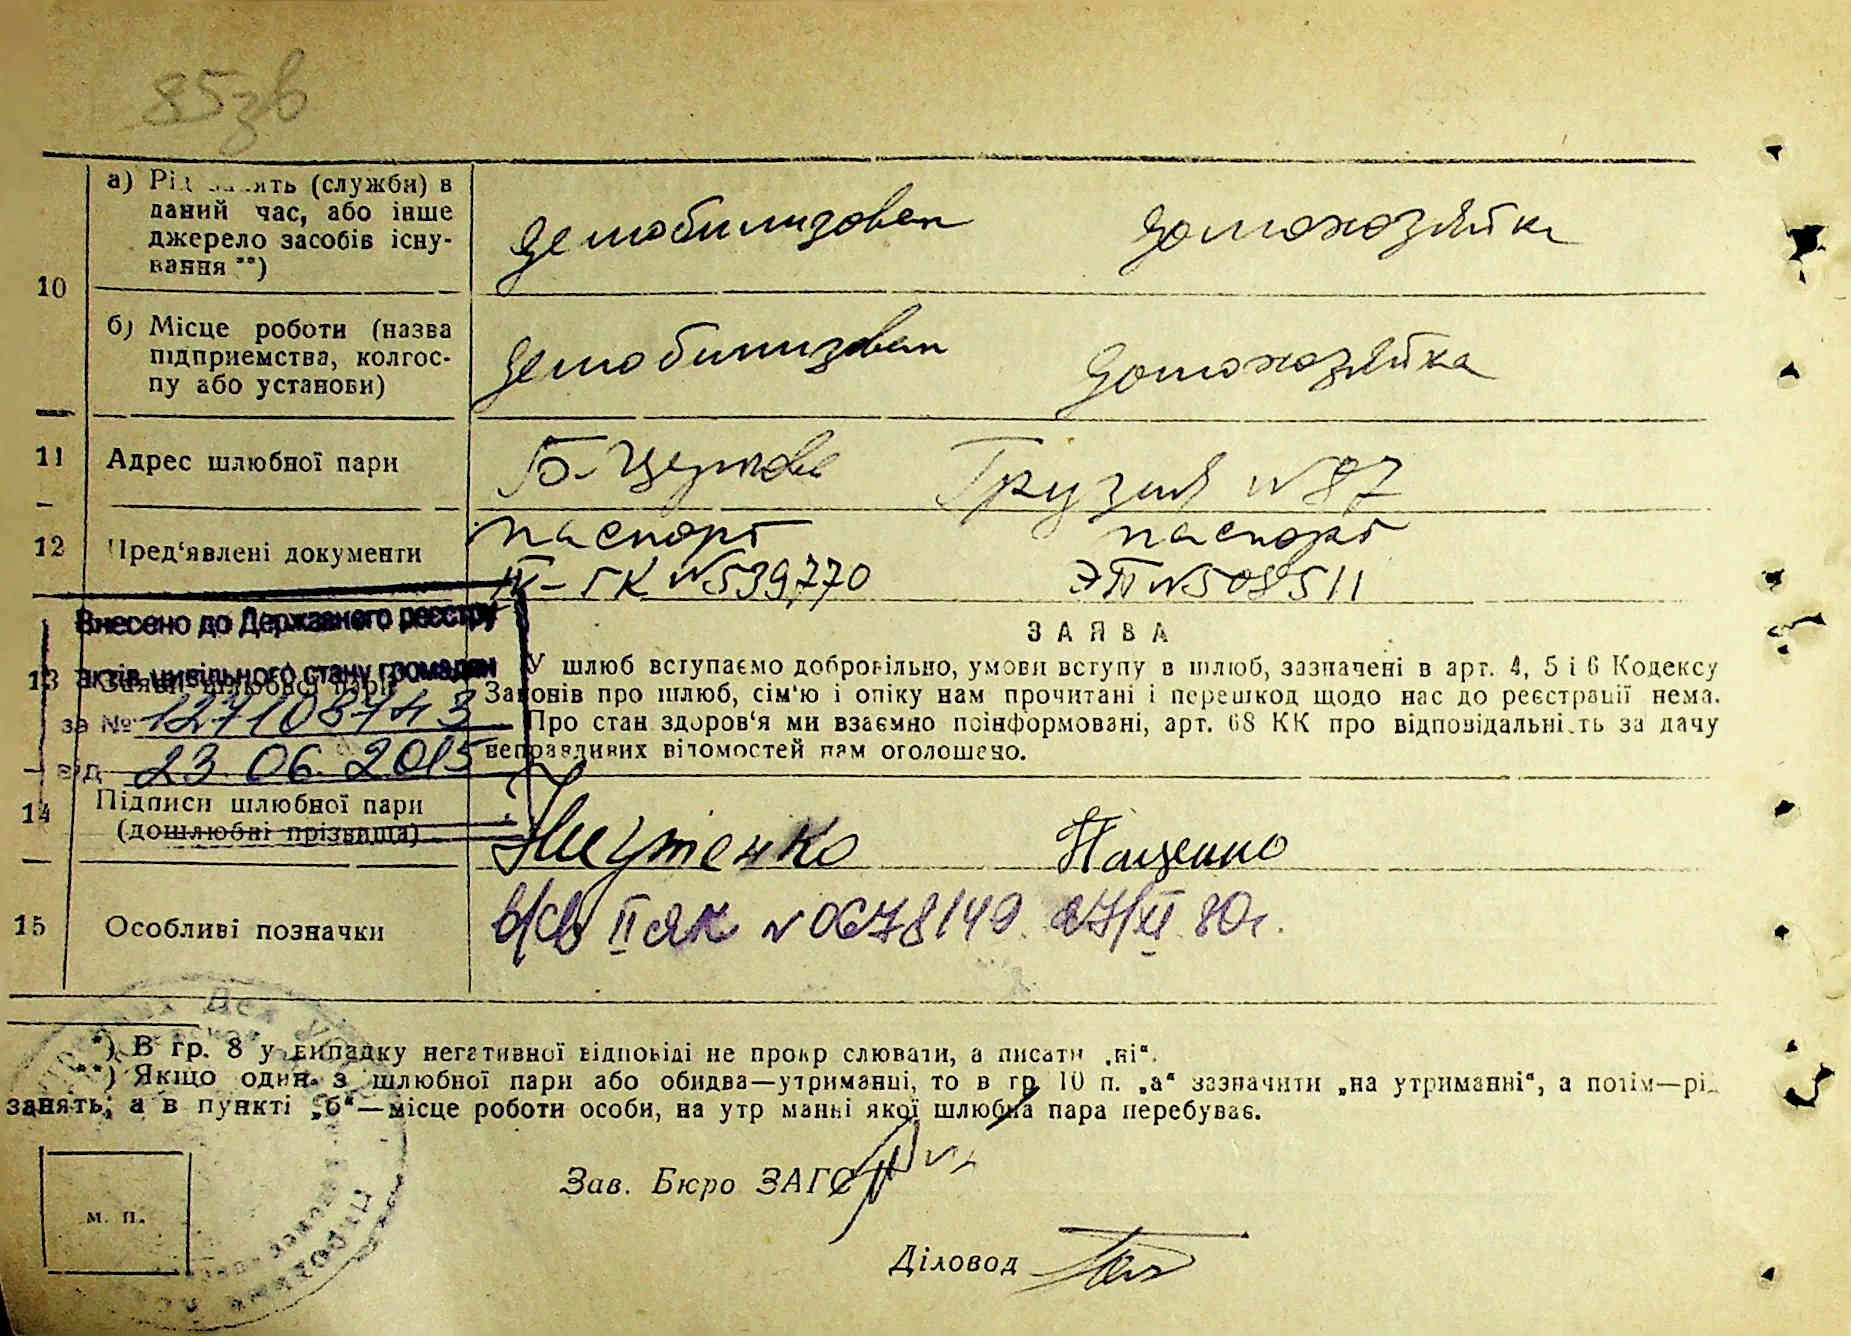 85зв
10
а) Рід занять (служби) в
даний час, або інше
джерело засобів існу-
вання **)
демобилизован домохозяйка
б) Місце роботи (назва
підприємства, колгос-
пу або установи)
демобилизован домохозяйка
11 Адрес шлюбної пари
Б-Церковь №87
12 Пред'явлені документи
паспорт паспорт
IV-ГК №539770 ЭП №508511
Внесено до Державного реєстру
актів цивільного стану громадян
за № 127108743
від 23 06. 2015
13 Заяви шлюбної пари
ЗАЯВА
У шлюб вступаємо добровільно, умови вступу в шлюб, зазначені в арт. 4, 5 і 6 Кодексу
Законів про шлюб, сім'ю і опіку нам прочитані і перешкод щодо нас до реєстрації нема.
Про стан здоров'я ми взаємно поінформовані, арт. 68 КК про відповідальність за дачу
неправдивих відомостей нам оголошено.
14 Підписи шлюбної пари
(дошлюбні прізвища)
15 Особливі позначки
в/св II ЯК №0678149 27/XI 80г.
*) В гр. 8 у випадку негативної відповіді не прокреслювати, а писати „ні“.
**) Якщо один з шлюбної пари або обидва—утриманці, то в гр. 10 п. „а“ зазначити „на утриманні“, а потім—рід
занять, а в пункті „б“—місце роботи особи, на утриманні якої шлюбна пара перебуває.
Зав. Бюро ЗАГС
м. п.
Діловод